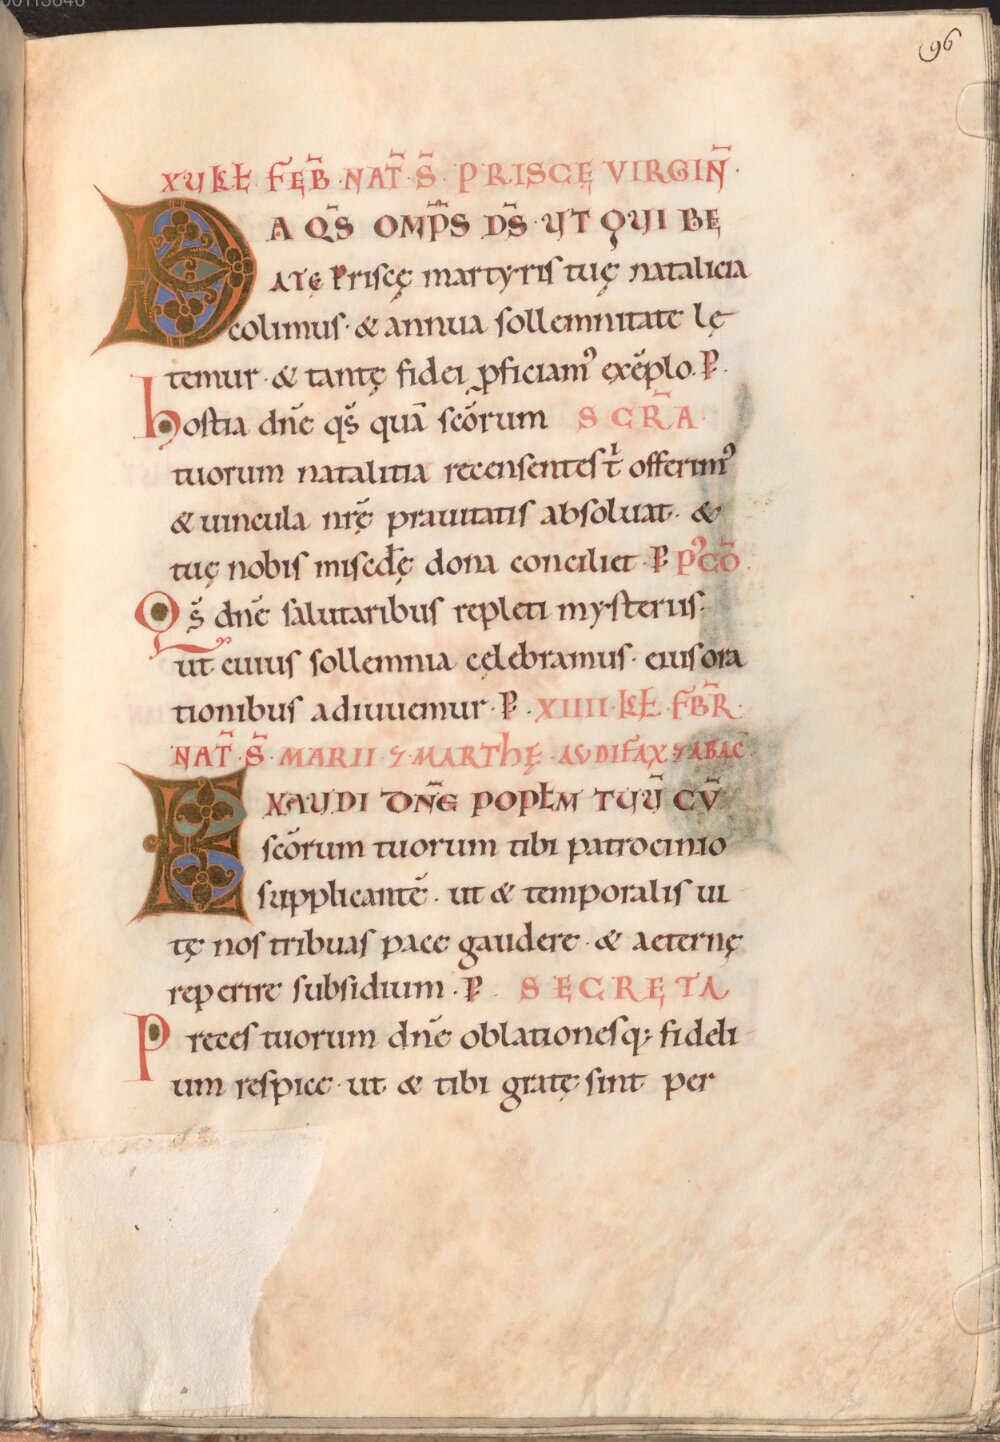 96
XV KL̅ FEB̅ · NAT̅ · S̅ · PRISCĘ VIRGIN̅ ·
DA QS̅ OMP̅S DS̅ · UT QUI BE
ATĘ Priscę martyris tuę natalicia
colimus · & annua sollemnitate lę
temur · & tantę fidei ꝓficiam᾿ exe̅plo. P̵ .
hostia dn̅e qs̅ qua̅ sc̅orum SCR̅A
tuorum natalitia recensentes t̅ offerim᾿
& uincula nr̅ę prauitatis absoluat · &
tuę nobis misc̅dę dona conciliet · P̵ P᾿CO̅
Qs̅ dn̅e salutaribus repleti mysteriis ·
ut cuius sollemnia cęlebramus · eius ora
tionibus adiuuemur · P̵ · XIIII · KL̅ FBR̅ ·
NAT̅ · S̅ · MARII ⁊ MARTHĘ · AUDIFAX ⁊ ABAC̅ ·
EXAUDI DN̅E POPL̅M TUU̅ CU̅
sc̅orum tuorum tibi patrocinio
supplicante̅ · ut & temporalis ui
tę nos tribuas pace gaudere · & aeternę
reperire subsidium · P̵ SECRETA
Preces tuorum dn̅e oblationesq; fideli
um respice · ut & tibi gratę sint per